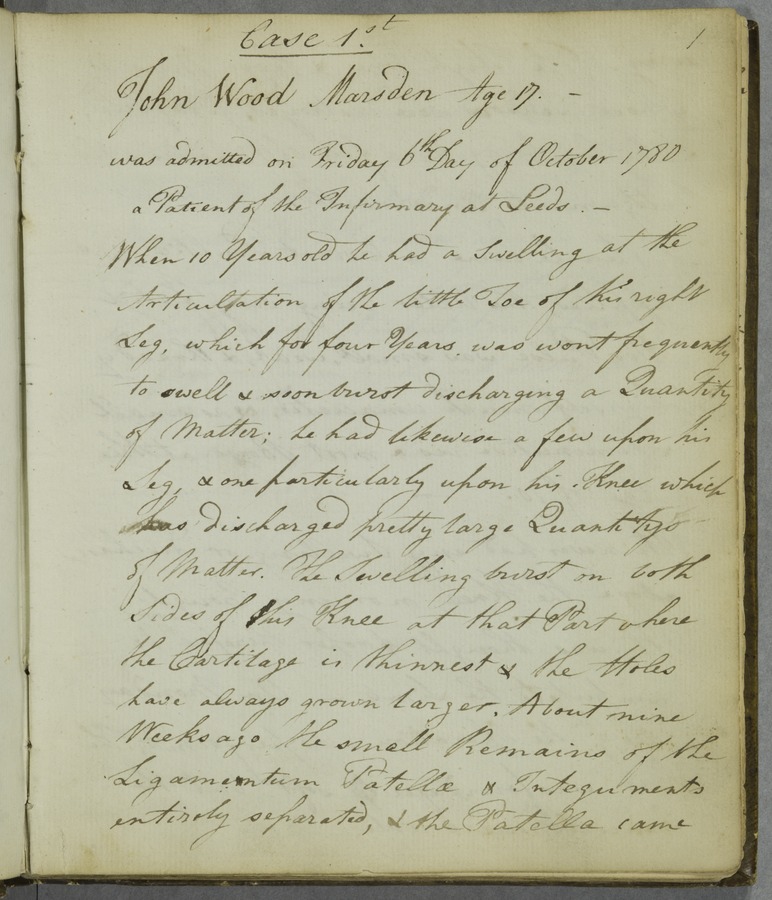 Case 1.st
1
John Wood Marsden Age 17. –
was admitted on Friday 6th Day of October 1780
a Patient of the Infirmary at Leeds. –
When 10 Years old he had a Swelling at the
Articulation of the little Toe of his right
Leg, which for four Years was wont frequently
to swell & soon burst discharging a Quantity
of Matter; he had likewise a few upon his
Leg, & one particularly upon his Knee which
has discharged pretty large Quantitys
of Matter. The Swelling burst on both
Sides of this Knee at that Part where
the Cartilage is thinnest & the Holes
have always grown larger. About nine
Weeks ago the small Remains of the
Ligamentum Patellæ & Integuments
entirely separated, & the Patella came